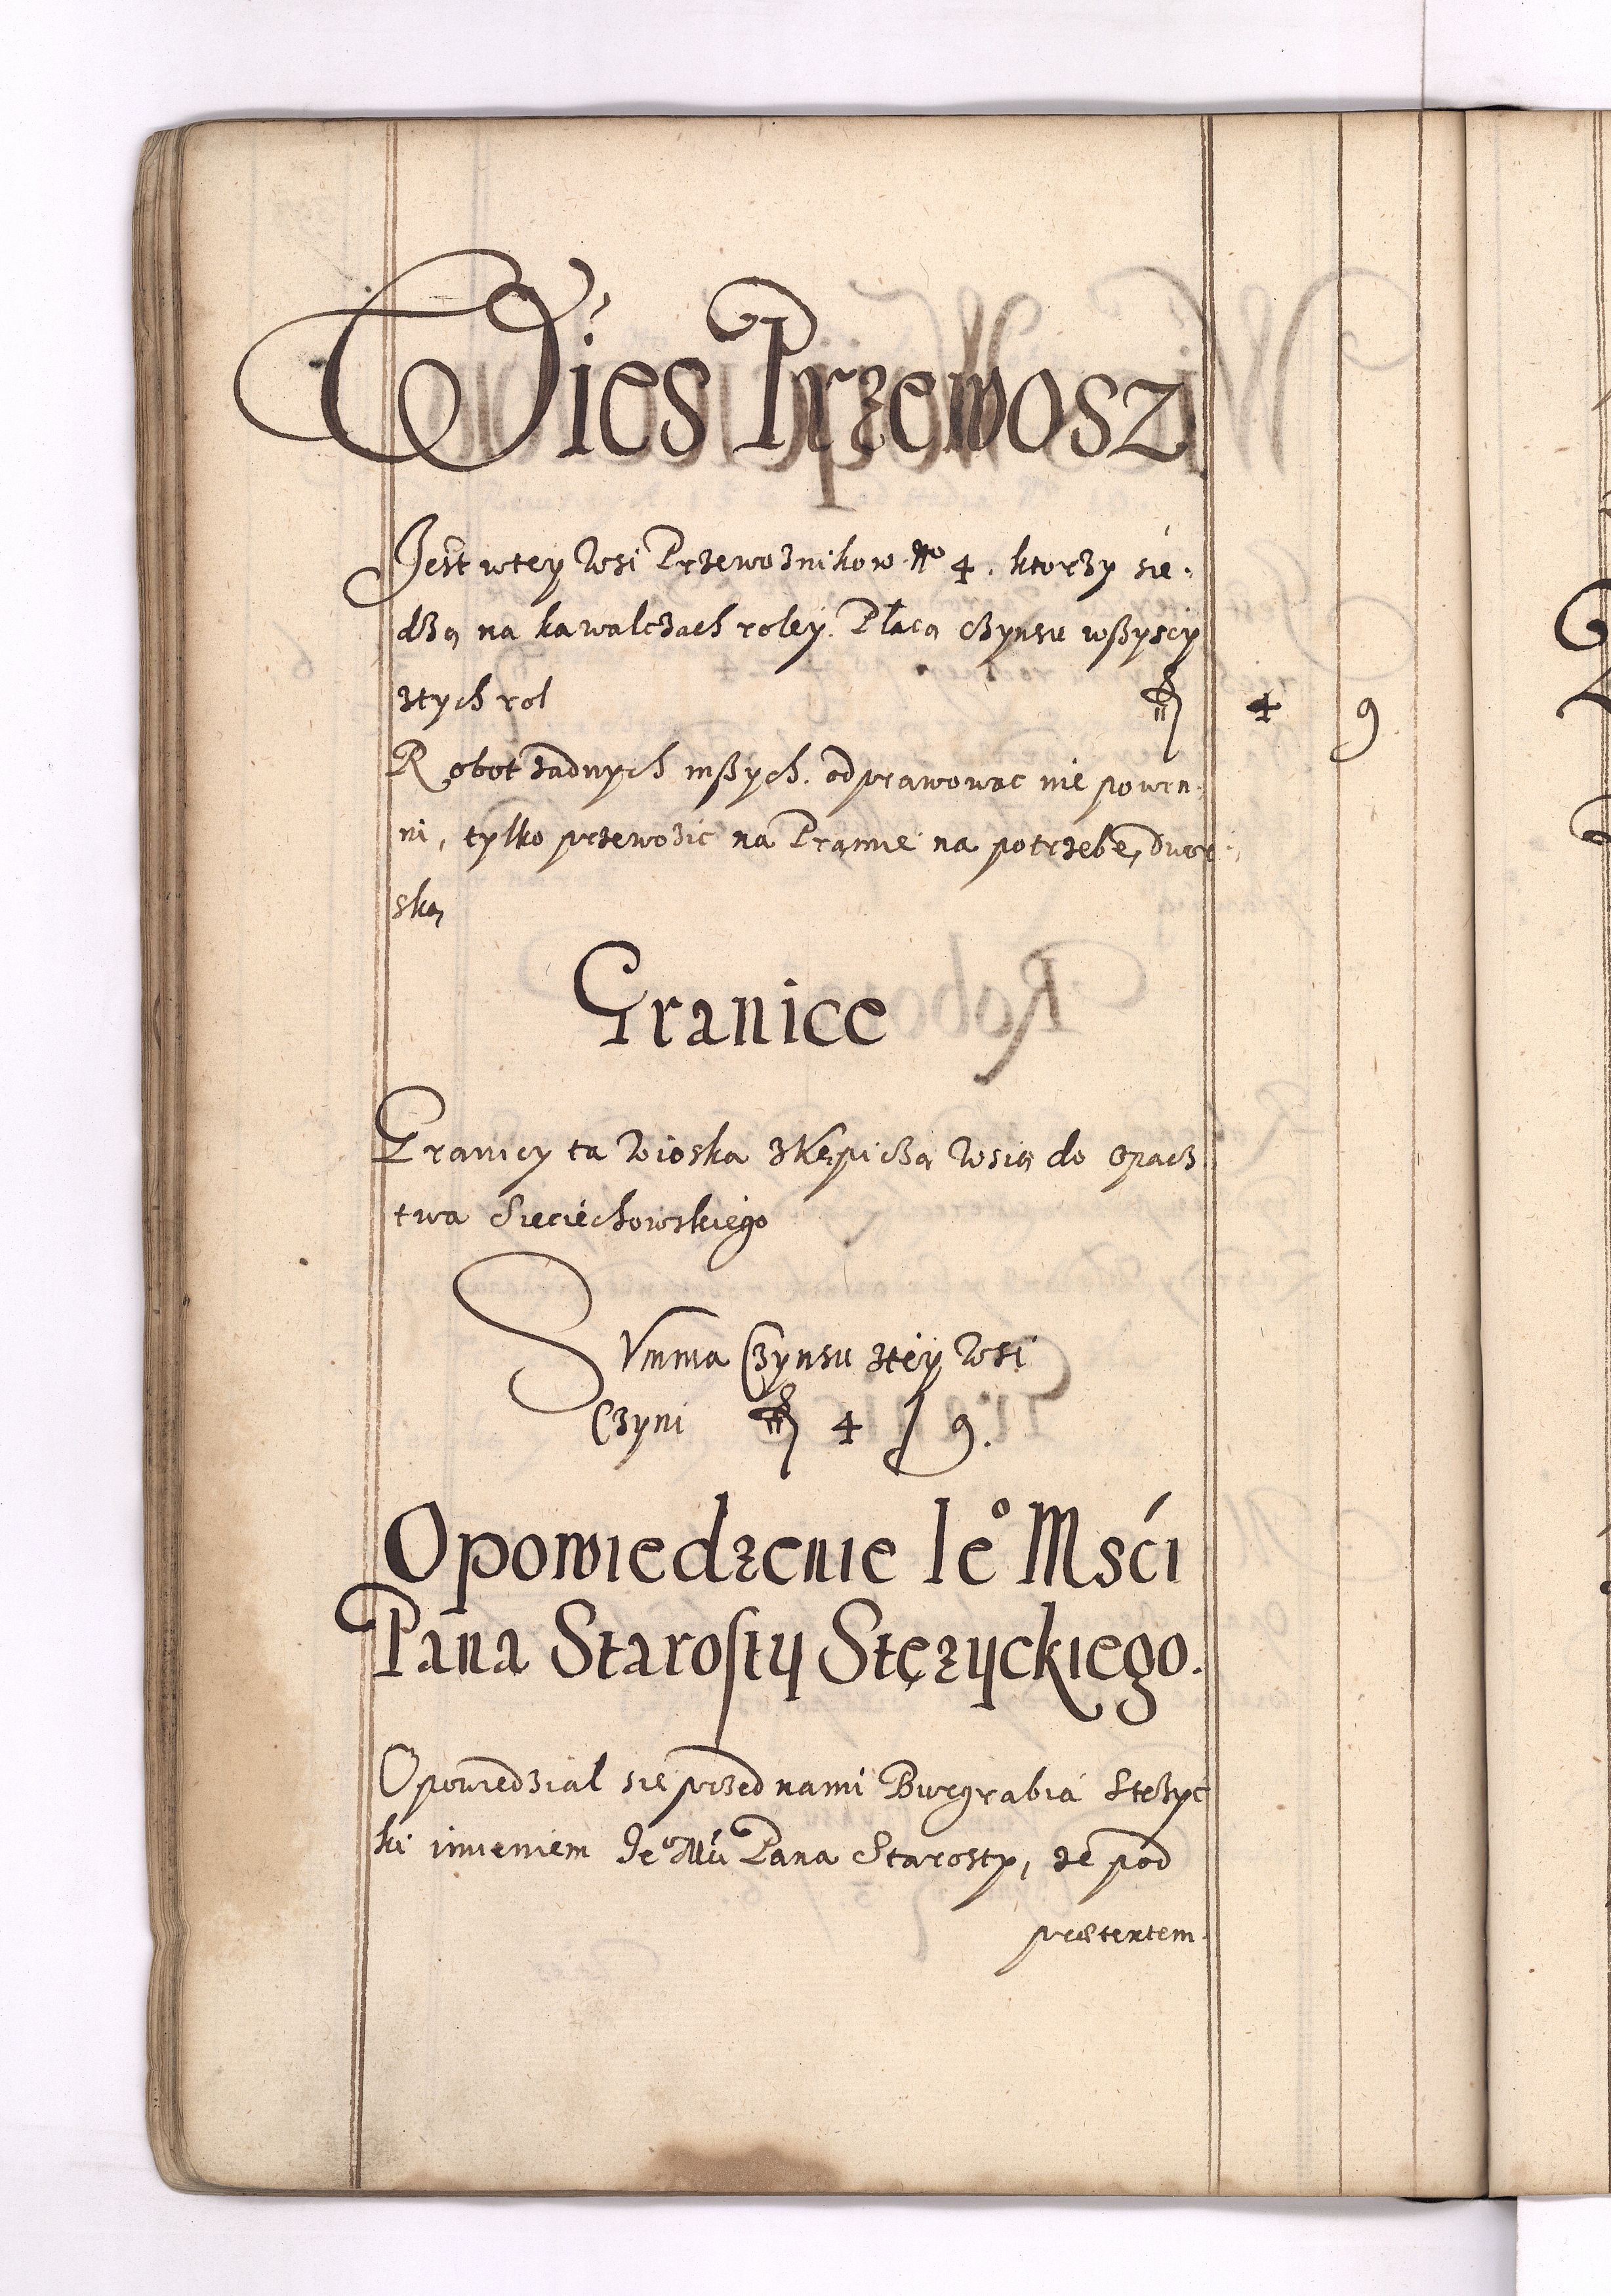 Wies Przewosz
Jest wtey Wsi Przewoznikow No 4. ktorzy sie-
dzą na kawalczach roley. Płacą czynsu wßyscy
ztych rol fl 4 9
Robot zadnych inßych odprawowac nie powin-
ni, tylko przewozic na Pramie na potrzebę Dwor-
ską
Granice
Granicy ta Wioska zKępiczą Wsią do Opacz
twa Sieciechowskiego
SVmma Czynsu ztey Wsi
Czyni fl 4 / 9.
Opowiedzenie Ieo Msći
Pana Starosty Stęzyckiego.
Opowiedzial sie przed nami Burgrabia Stezyc
ki imieniem Jeo Mći Pana Starosty, ze pod
prætextem